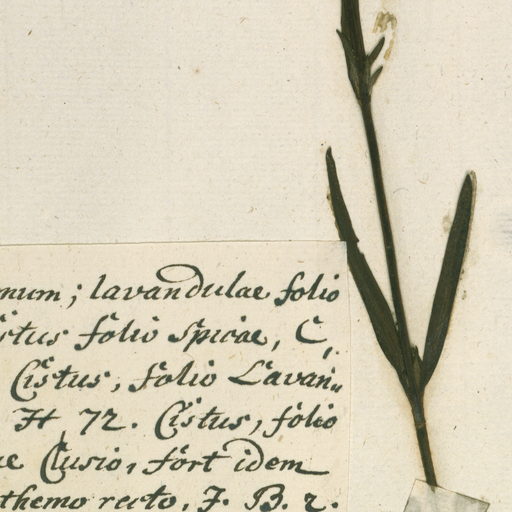 num; lavandulae folio
Cistus folio spicae, C,
Cistus, folio Lavan„
H 72. Cistus, folio
ae Clusio, fort idem
themo recto, J. B. 2.